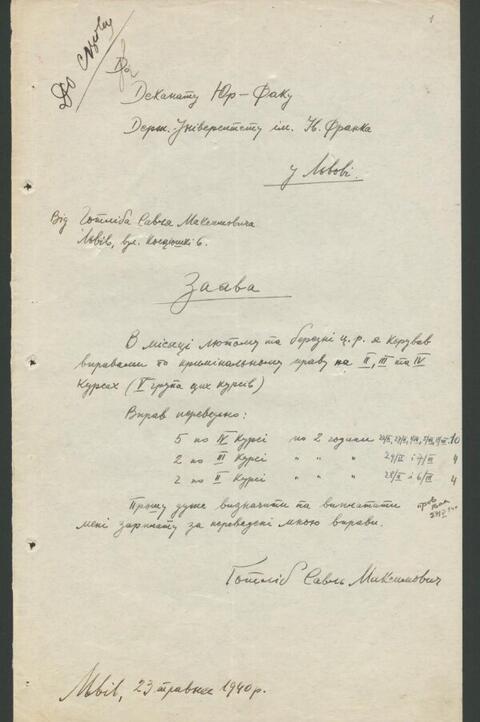 1
До справи
До
Деканату Юр-Факу
Держ. Університету ім. Ів. Франка
у Львові.
Від Готліба Савла Максимовича
Львів, вул. Косцюшкі 6.
Заява
В місяці лютому та березні ц. р. я керував
вправами по кримінальному праву на II, III та IV
Курсах (V група цих курсів)
Вправ переведено:
5 по IV Курсі по 2 години 10
2 по III Курсі " " " 29/II і 7/III 4
2 по II Курсі " " " 28/II і 6/III 4
Прошу дуже визначити та виплатати
мені зарплату за переведені мною вправи.
Готліб Савль Максимович
Львів, 23 травня 1940 р.